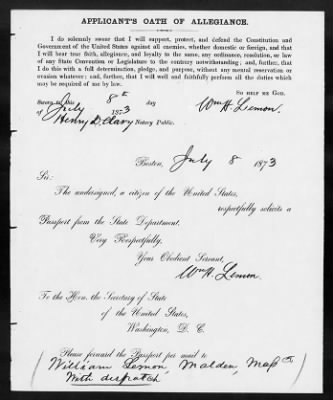 APPLICANT'S OATH OF ALLEGIANCE.
I do solemnly swear that I will support, protect, and defend the Constitution and
Government of the United States against all enemies, whether domestic or foreign, and that
I will bear true faith, allegiance, and loyalty to the same, any ordinance, resolution, or law
of any State Convention or Legislature to the contrary notwithstanding; and, further, that
I do this with a full determination, pledge, and purpose, without any mental reservation or
evasion whatever; and, further, that I will well and faithfully perform all the duties which
may be required of me by law.
SO HELP ME GOD.
Sworn to this 8th day
Wm H. Lemon.
of July 1873
Henry D. Notary Public.
Boston, July 8 1873
Sir:
The undersigned, a citizen of the United States,
respectfully solicits a
Passport from the State Department.
Very Respectfully,
Your Obedient Servant,
Wm H. Lemon.
To the Hon. the Secretary of State
of the United States,
Washington, D. C.
Please forward the Passport per mail to
William Lemon, Malden, Mass
With dispatch